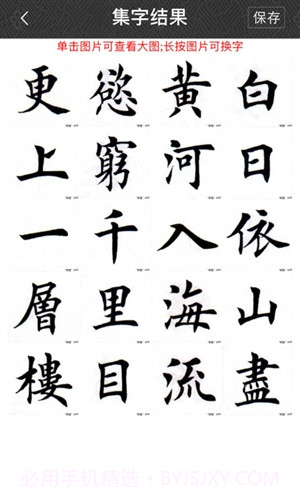 集字结果
保存
单击图片可查看大图;长按图片可换字
白日依山盡
黄河入海流
慾窮千里目
更上一層樓
必用手机精选·BYJSJXY.COM